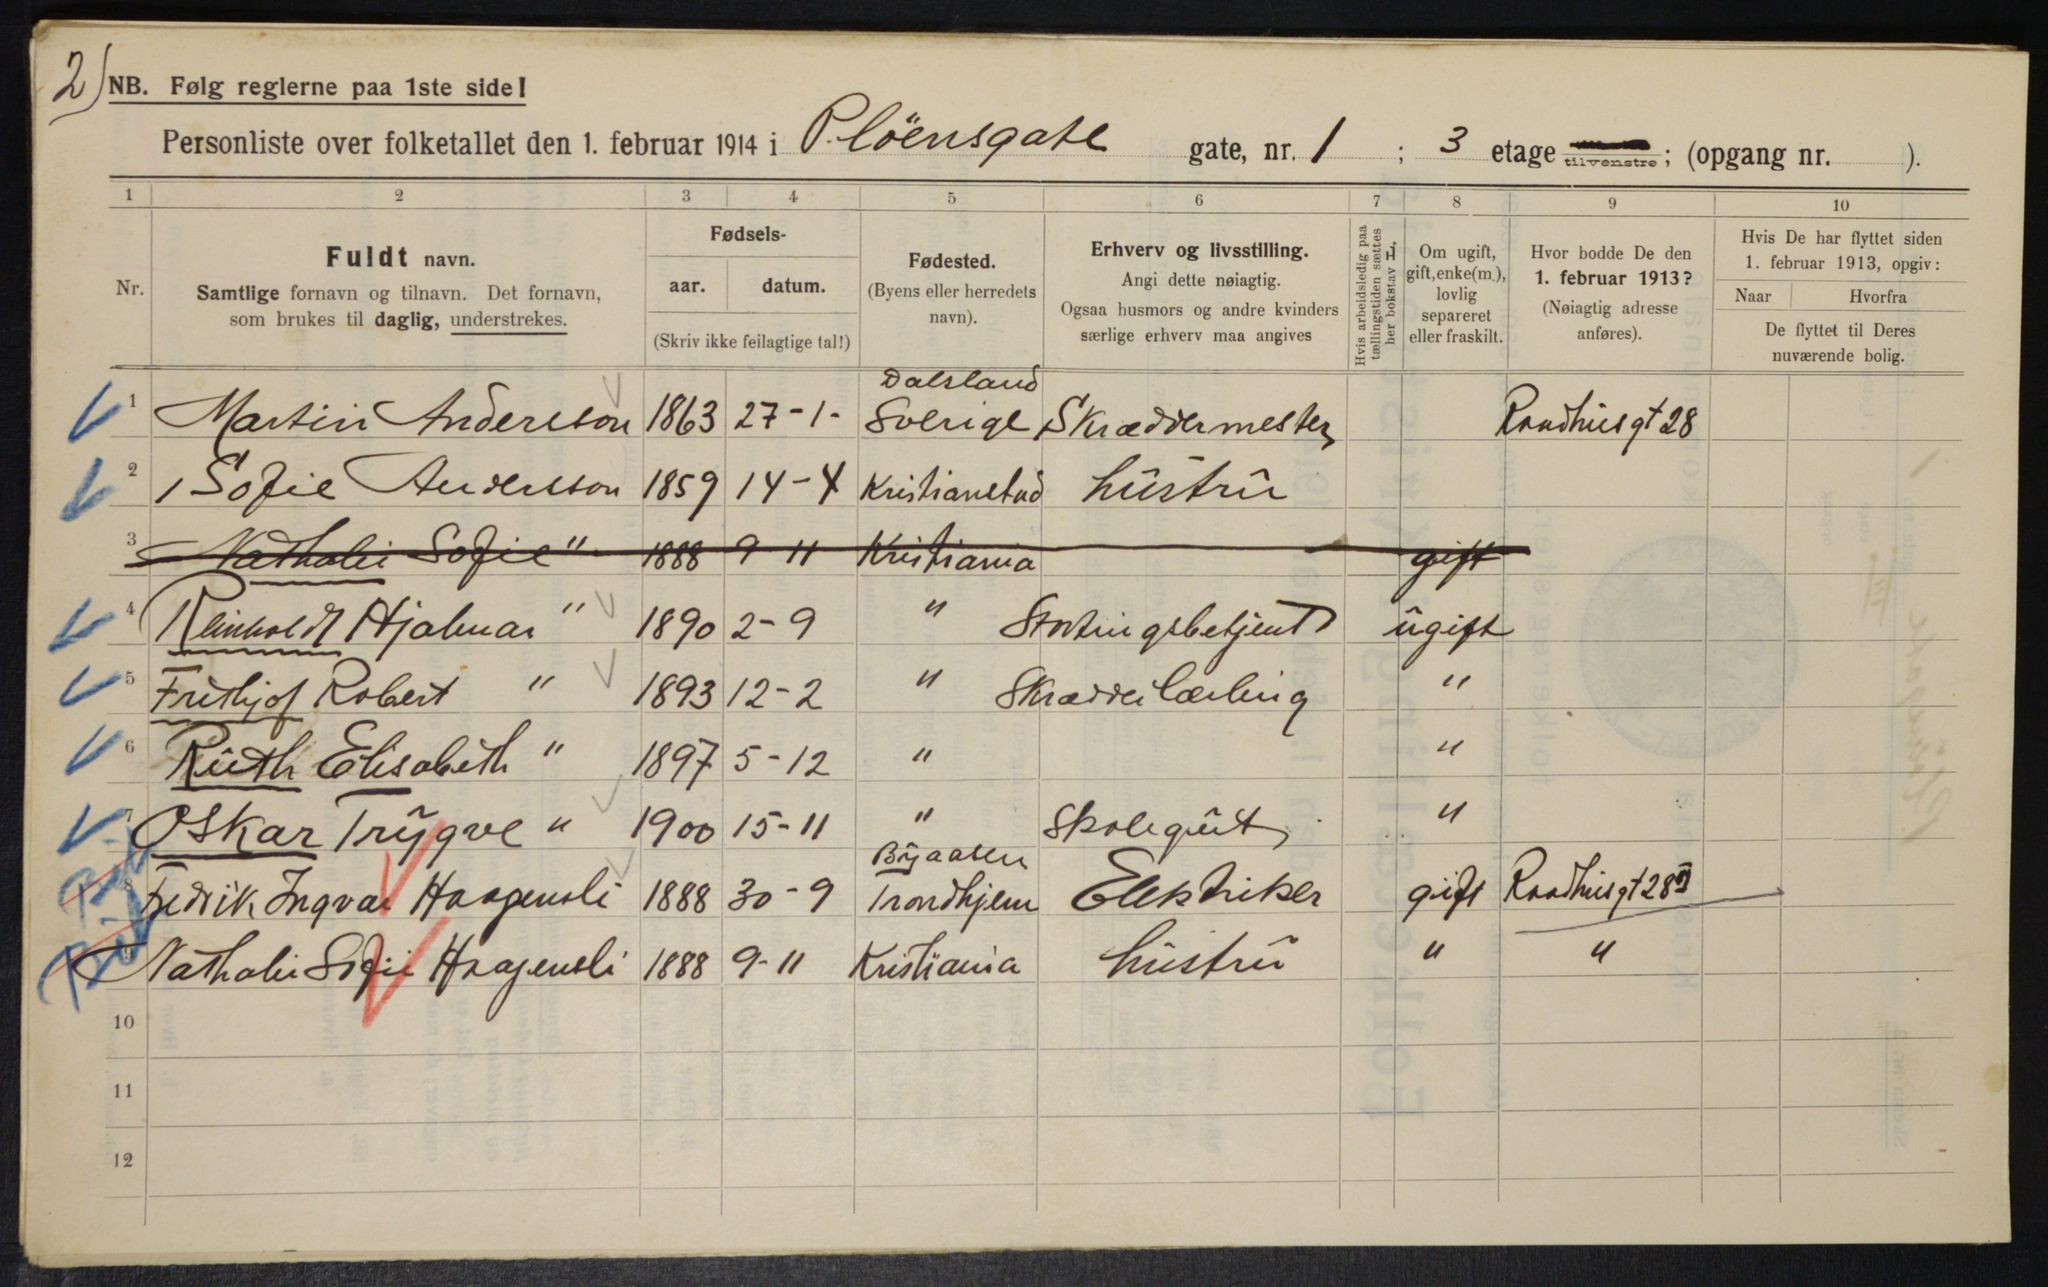 2)
NB. Følg reglerne paa 1ste side!
Personliste over folketallet den 1. februar 1914 i Plöensgate gate, nr. 1 ; 3 etage tilvenstre ; (opgang nr. ).
1 2 3 4 5 6 7 8 9 10
Nr.
Fuldt navn.
Samtlige fornavn og tilnavn. Det fornavn,
som brukes til daglig, understrekes.
Fødsels-
aar. datum.
(Skriv ikke feilagtige tal!)
Fødested.
(Byens eller herredets
navn).
Erhverv og livsstilling.
Angi dette nøiagtig.
Ogsaa husmors og andre kvinders
særlige erhverv maa angives
Hvis arbeidsledig paa
tællingstiden sættes
her bokstav L.
Om ugift,
gift, enke(m.),
lovlig
separeret
eller fraskilt.
Hvor bodde De den
1. februar 1913?
(Nøiagtig adresse
anføres).
Hvis De har flyttet siden
1. februar 1913, opgiv:
Naar Hvorfra
De flyttet til Deres
nuværende bolig.
Dalsland
1 Martin Andersson 1863 27-1- Sverige Skræddermester Raadhusgt 28
2 Sofie Andersson 1859 14-4 Kristianstad hustru
3 Nathalie Sofie " 1888 9-11 Kristiania gift
4 Reinholdt Hjalmar " 1890 2-9 " Stortingsbetjent ugift
5 Frithjof Robert " 1893 12-2 " Skrædderlærling "
6 Ruth Elisabeth " 1897 5-12 " "
7 Oskar Trygve " 1900 15-11 " Skolegut "
Byaasen
8 Fredrik Ingvar Haagensli 1888 30-9 Trondhjem Elektriker gift Raadhusgt 28
9 Nathalie Sofie Haagensli 1888 9-11 Kristiania hustru " "
10
11
12